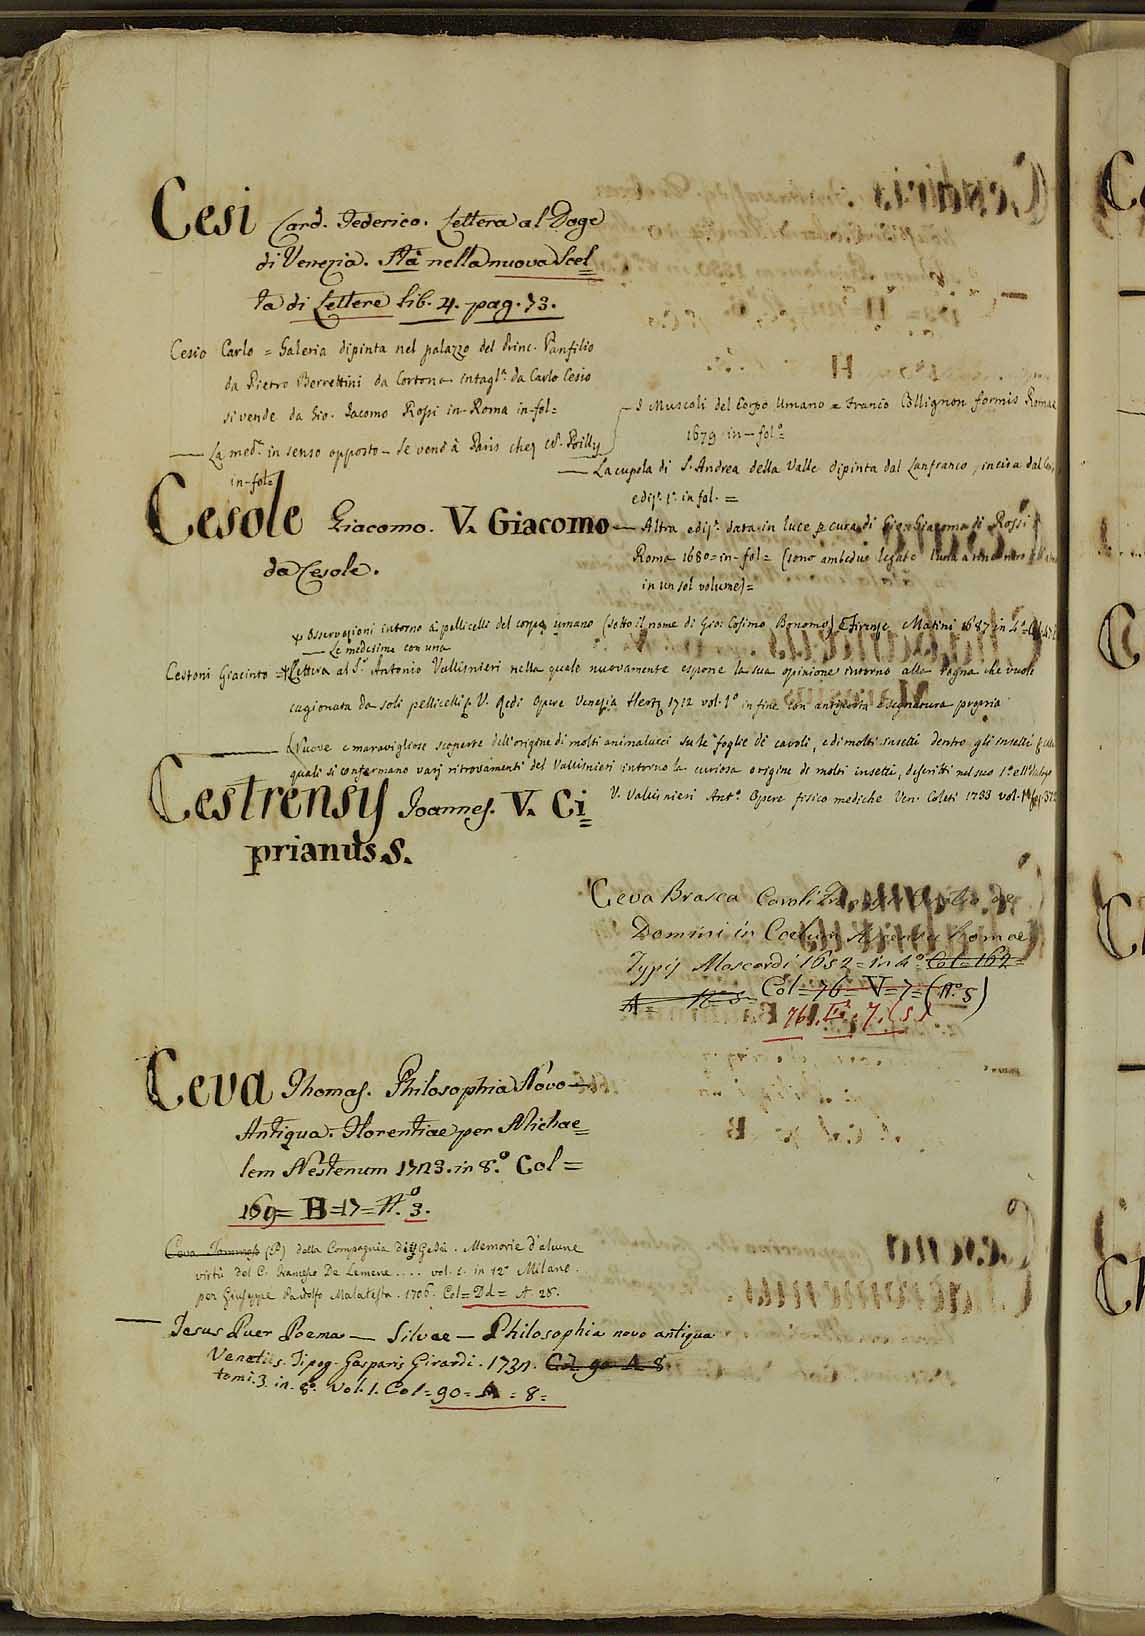 Cesi Card. Federico. Lettera al Doge
di Venezia. Stà nella nuova Scel=
ta di Lettere lib. 4. pag. 73.
Cesio Carlo = Galeria dipinta nel palazzo del Princ. Panfilio
da Pietro Berrettini da Cortona intagl.ᵃ da Carlo Cesio
si vende da Gio. Iacomo Rossi in Roma in-fol=
— La med.ᵃ in senso opposto — Se vend à Paris chez Poilly
in-fol=
I Muscoli del Corpo Umano = Franco Collignon formis Romae
1679 in-fol.º=
— La cupola di S. Andrea della Valle dipinta dal Lanfranco, incisa dal
ediz. 1ª in fol. =
— Altra ediz.ᵉ data in luce p cura di Gio. Giacomo di Rossi
Roma 1680 = in-fol= (sono ambedue legate l'una a rincontro
in un sol volume)=
Cesole Giacomo. V. Giacomo
da Cesole.
Osservazioni intorno a' pellicelli del corpo umano (sotto il nome di Gio: Cosimo Bonomo) Firenze Matini 1687 in 4.º
— Le medesime con una
Cestoni Giacinto = Lettera al S.ʳ Antonio Vallisnieri nella quale nuovamente espone la sua opinione intorno alla rogna che vuole
cagionata da soli pellicelli V. Redi Opere Venezia Hertz 1712 vol. 1º in fine con antiporta e segnatura propria
— Nuove e maravigliose scoperte dell'origine di molti animalucci su le foglie di cavoli, e di molti insetti dentro gli insetti
quali si confermano varj ritrovamenti del Vallisnieri intorno la curiosa origine di molti insetti, descritti nel suo 1º e IIº
V. Vallisnieri Antº. Opere fisico mediche Ven. Coleti 1733 vol. 1º
Cestrensis Joannes. V. Ci=
prianus S.
Ceva Brasca Caroli Oratio de
Domini in Coelum Ascensu Romae
Typis Mascardi 1652 = in 4º Col = 162 =
A = Col = 76 = V = 7 = (Nº 5)
76. 7. (5)
Ceva Thomas. Philosophia Novo —
Antiqua. Florentiae per Michae=
lem Nestenum 1723. in 8.º Col =
169 = B = 17 = N.º 3.
Ceva Tommaso (P) della Compagnia di Gesù. Memorie d'alcune
virtù del C. Francesco De Lemene .... vol. 1. in 12º Milano.
per Giuseppe Pandolfo Malatesta. 1706. Col = Dd = A. 28.
— Jesus Puer Poema — Silvae — Philosophia novo antiqua
Venetiis. Tipog. Gasparis Girardi. 1732. Col. 90 A 8
tomi. 3. in. 8º. Vol. 1. Col = 90 = A = 8 =